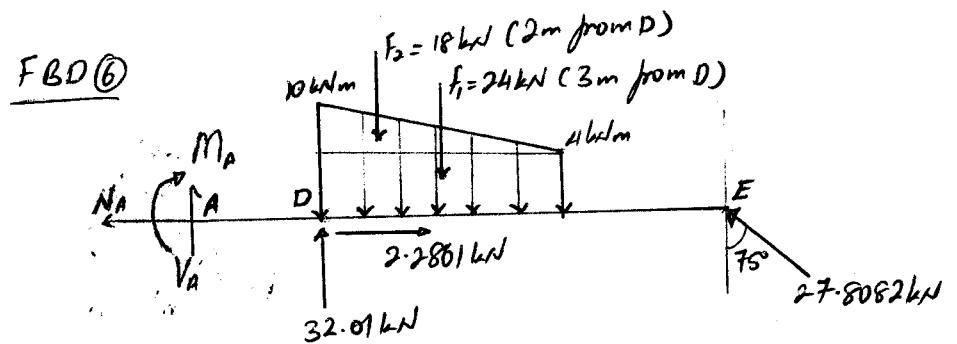 FBD⑥
F₂ = 18 kN (2m from D)
f₁ = 24 kN (3m from D)
10 kN/m
4 kN/m
M_A
N_A
A
V_A
D
E
2.2861 kN
75°
27.8082 kN
32.01 kN